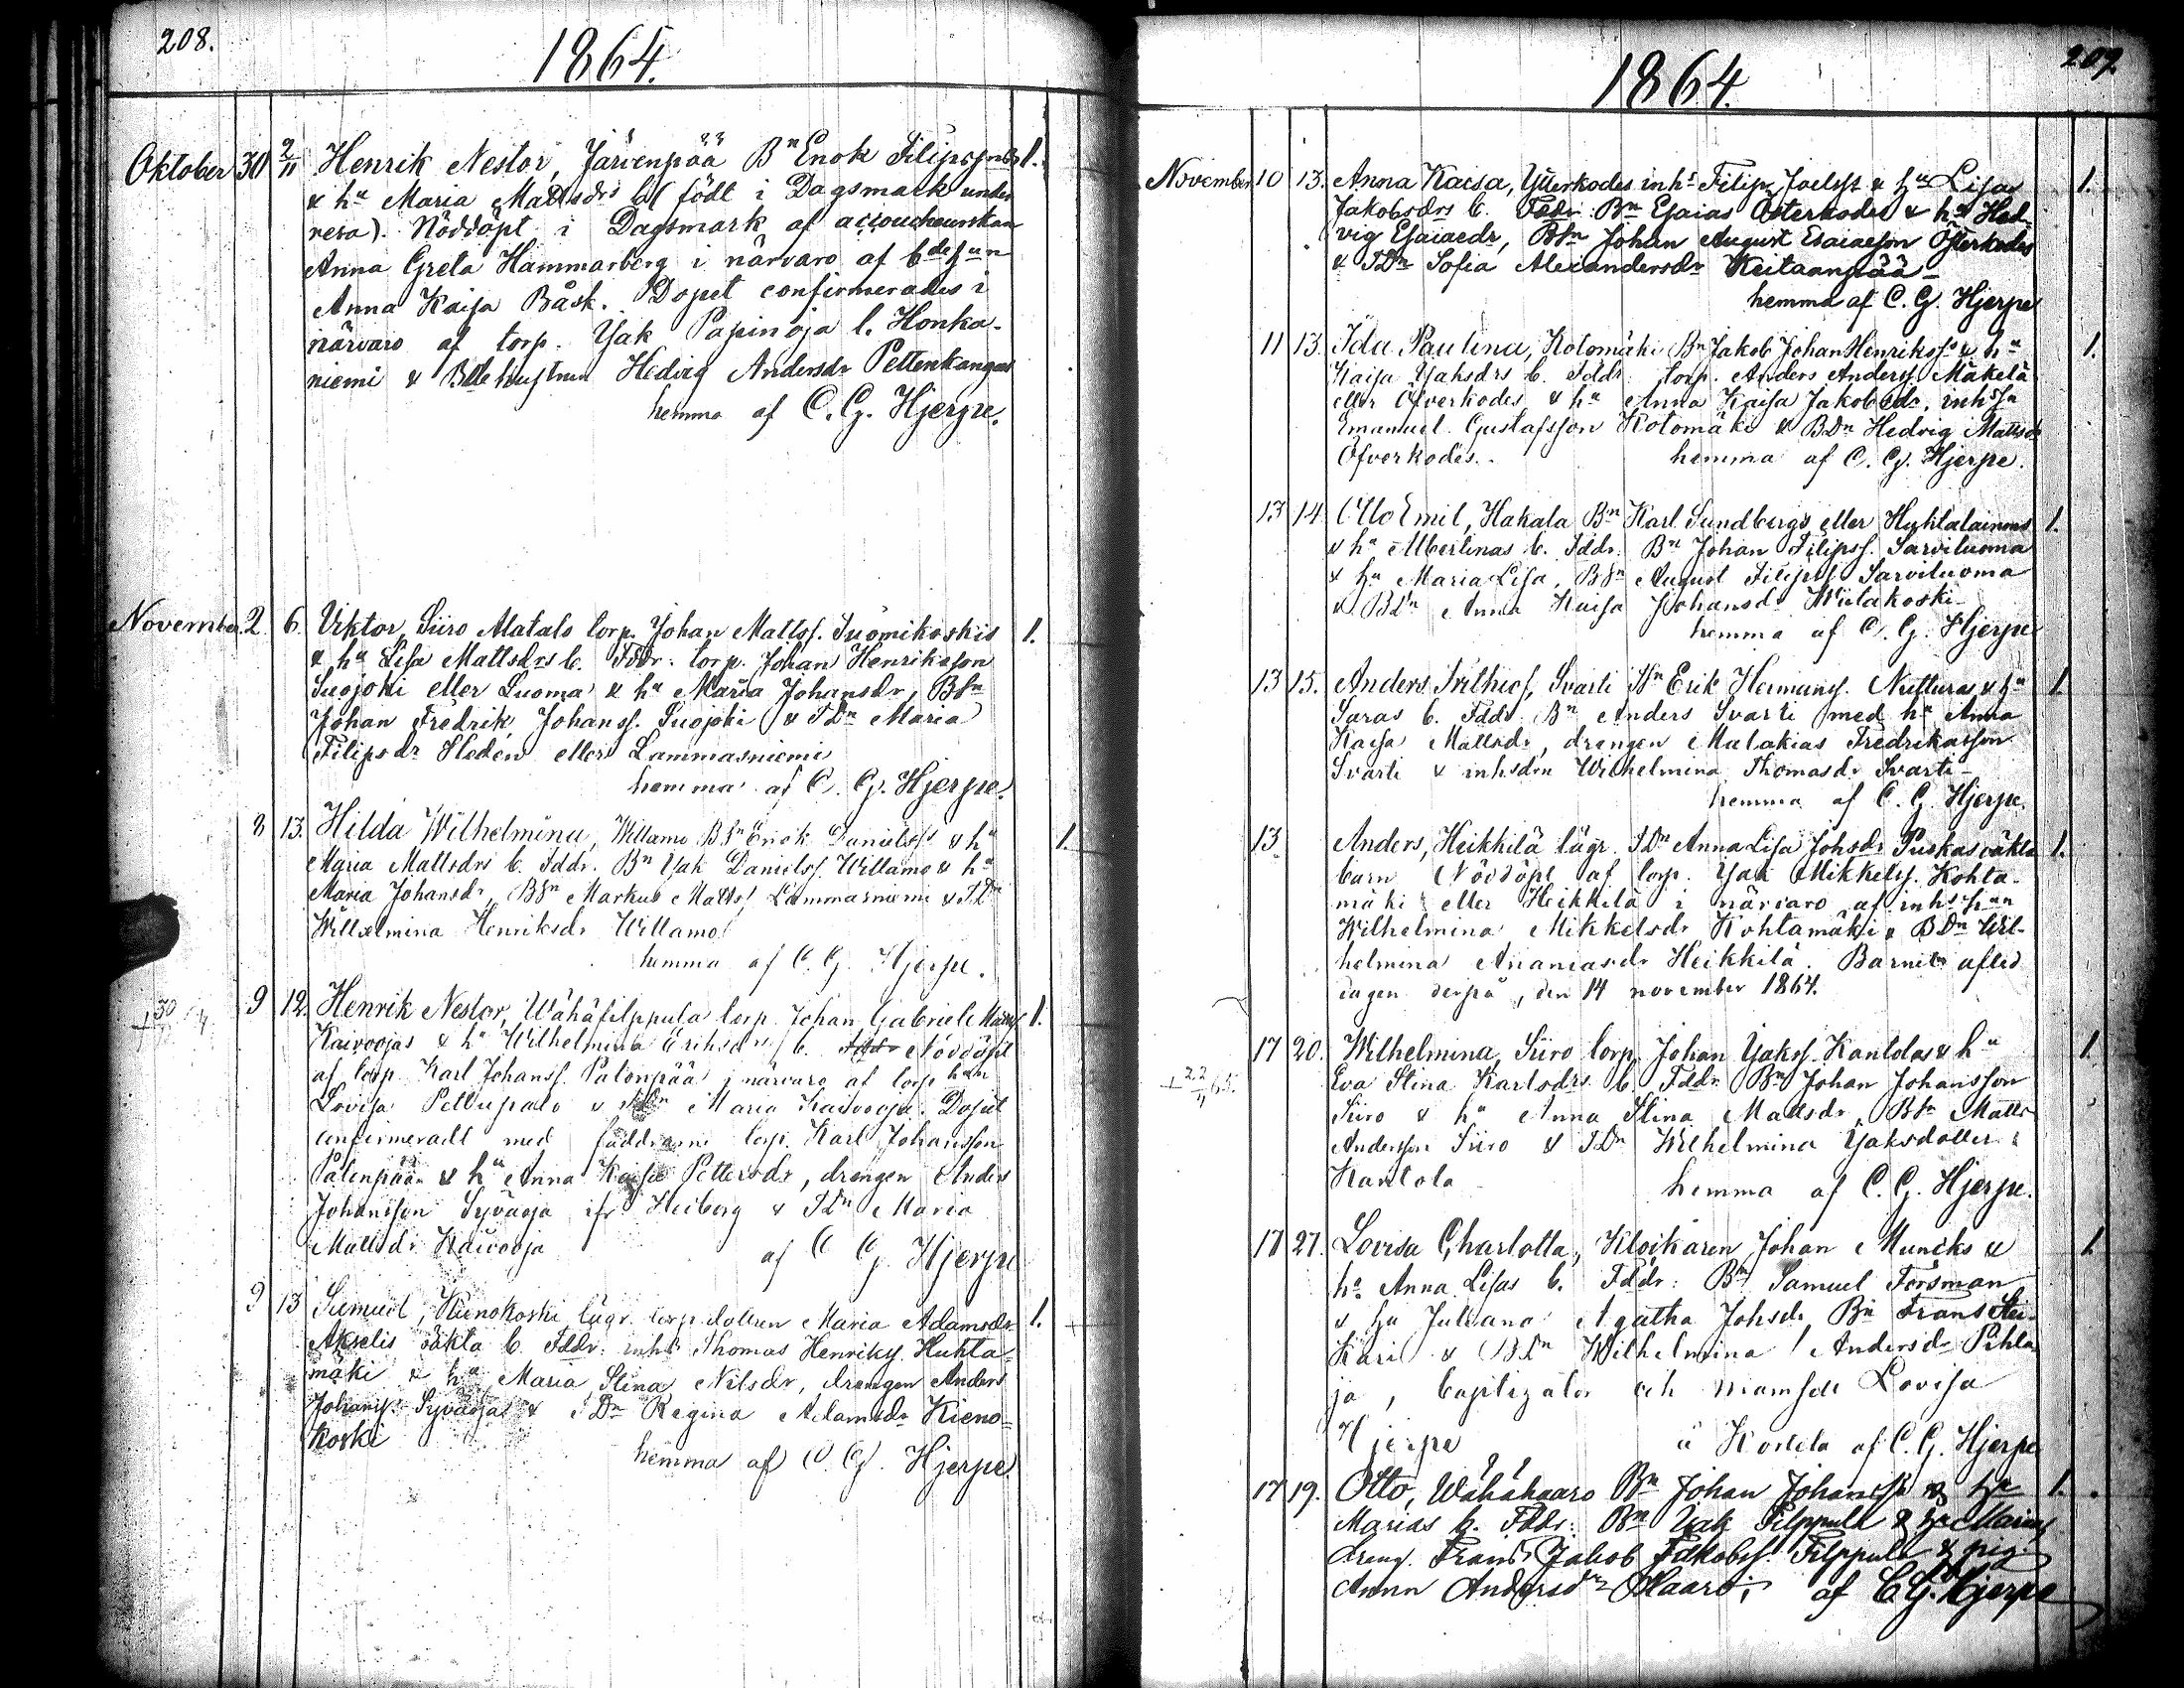 208.
1864.
Oktober 30 2/11 Henrik Nestor, Järvenpää Bn Enok Filipssons 1.
& ha Maria Mattsdrs b( födt i Dagsmark under
resa). Nöddöpt i Dagsmark af accoucheuskan
Anna Greta Hammarberg i närvaro af bdehun
Anna Kaisa Båsk. Dopet confirmerades i
närvaro af torp. Isak Papinoja l. Honka-
niemi & Bde hustrun Hedvig Andersdr Pettenkangas
hemma af C. G. Hjerpe.
November. 2 6. Viktor, Siiro Alatalo torp. Johan Mattss. Suomikoskis 1.
& ha Lisa Mattsdrs b. Fddr: torp. Johan Henriksson
Suojoki eller Luoma & ha Maria Johansdr, BSn
Johan Fredrik Johanss. Suojoki & TDn Maria
Filipsdr Hedén eller Lammasniemi
hemma af C. G. Hjerpe.
8 13. Hilda Wilhelmina, Willamo BSn Enok Danielss & ha 1.
Maria Mattsdrs b. Fddr. Bn Isak Danielss. Willamo & ha
Maria Johansdr, BSn Markus Mattss. Lammasniemi & TDn
Wilhelmina Henriksdr Willamo
hemma af C. G. Hjerpe.
9 12. Henrik Nestor, Wähäfilppula torp. Johan Gabriel Matss. 1.
Kaivoojas & ha Wilhelmina Eriksdrs b. Fddr Nöddöpt
af torp. Karl Johanss. Palonpää i närvaro af torp. hun
Lovisa Pettupalo & TDn Maria Kaivooja. Dopet
confirmeradt med faddrarne torp. Karl Johansson
Palenpää & ha Anna Kaisa Pettersdr, drengen Anders
Johansson Syväoja ifr Heiberg & TDn Maria
Mattsdr Kaivooja af C G. Hjerpe
9 13 Samuel, Kienokoski lägr. torp. dottren Maria Adamsdr 1.
Akselis oäkta b. Fddr. inhs Thomas Henrikss. Huhta-
mäki & ha Maria Stina Nilsdr, drengen Anders
Johanss. Syväoja & TDn Regina Adamsdr Kieno-
koski
hemma af C. G. Hjerpe.
209.
1864.
November 10 13. Anna Kaisa, Ytterkodes inhs Filip Joelss & ha Lisa 1.
Jakobsdrs b. Fddr: Bn Esaias Österkodes & ha Hed-
vig Esaiaedr, BSn Johan August Esaiaeson Österkodes
& TDn Sofia Alexandersdr Keitaanpää-
hemma af C. G. Hjerpe
11 13. Ida Paulina, Kotomäki Bn Jakob Johan Henrikss & ha 1.
Kaisa Isaksdrs b. Fddr: torp. Anders Anderss. Mäkelä
eller Öfverkodes & ha Anna Kaisa Jakobsdr, inhssn
Emanuel Gustafsson Kotomäki & BDn Hedvig Mattsdr
Öfverkodes. hemma af C. G. Hjerpe.
13 14. Otto Emil, Hakala Bn Karl Sundbergs eller Huhtalainens 1.
& ha Albertinas b. Fddr: Bn Johan Filipss. Sarviluoma
& ha Maria Lisa, BSn August Filipss. Sarviluoma
& BDn Anna Kaisa Johansdr Wielakoski-
hemma af C. G. Hjerpe
13 15. Anders Frithiof, Svarti Sn Erik Hermanss. & ha 1.
Saras b. Fddr. Bn Anders Svarti med ha Anna
Kaisa Mattsdr, drengen Malakias Fredriksson
Svarti & inhsdn Wilhelmina Thomasdr Svarti-
hemma af C. G. Hjerpe.
13 Anders, Heikkilä lägr. TDn Anna Lisa Johsdr Puskas oäkta 1.
barn Nöddöpt af torp. Isak Mikkelss. Kohta-
mäki eller Heikkilä i närvaro af inhshun
Wilhelmina Mikkelsdr Kohtamäki & BDn Wil-
helmina Ananiasdr Heikkilä. Barnet afled
dagen derpå, den 14 november 1864.
17 20. Wilhelmina, Siiro torp. Johan Isakss. Kantolas & ha 1.
Eva Stina Karlsdrs b. Fddr: Bn Johan Johansson
Siiro & ha Anna Stina Mattsdr, BSn Matts
Andersson Siiro & TDn Wilhelmina Isaksdotter
Kantola hemma af C. G. Hjerpe.
17 27. Lovisa Charlotta, Klockaren Johan Muncks & 1.
ha Anna Lisas b. Fddr: Bn Samuel Forsman
& ha Juliana Agatha Johsdr, Bn Frans Hei-
kari & BDn Wilhelmina Andersdr Pihla
ja, baptizator och mamsell Lovisa
Hjerpe å Koskela af C. G. Hjerpe
17 19. Otto, Wähähaaro Bn Johan Johanss. & ha 1.
Marias b. Fddr: Bn Isak Filppula & ha Maria,
dreng. Frans Jakob Jakobss. Filppula & pig.
Anna Andersdr Haaro; af C. G. Hjerpe